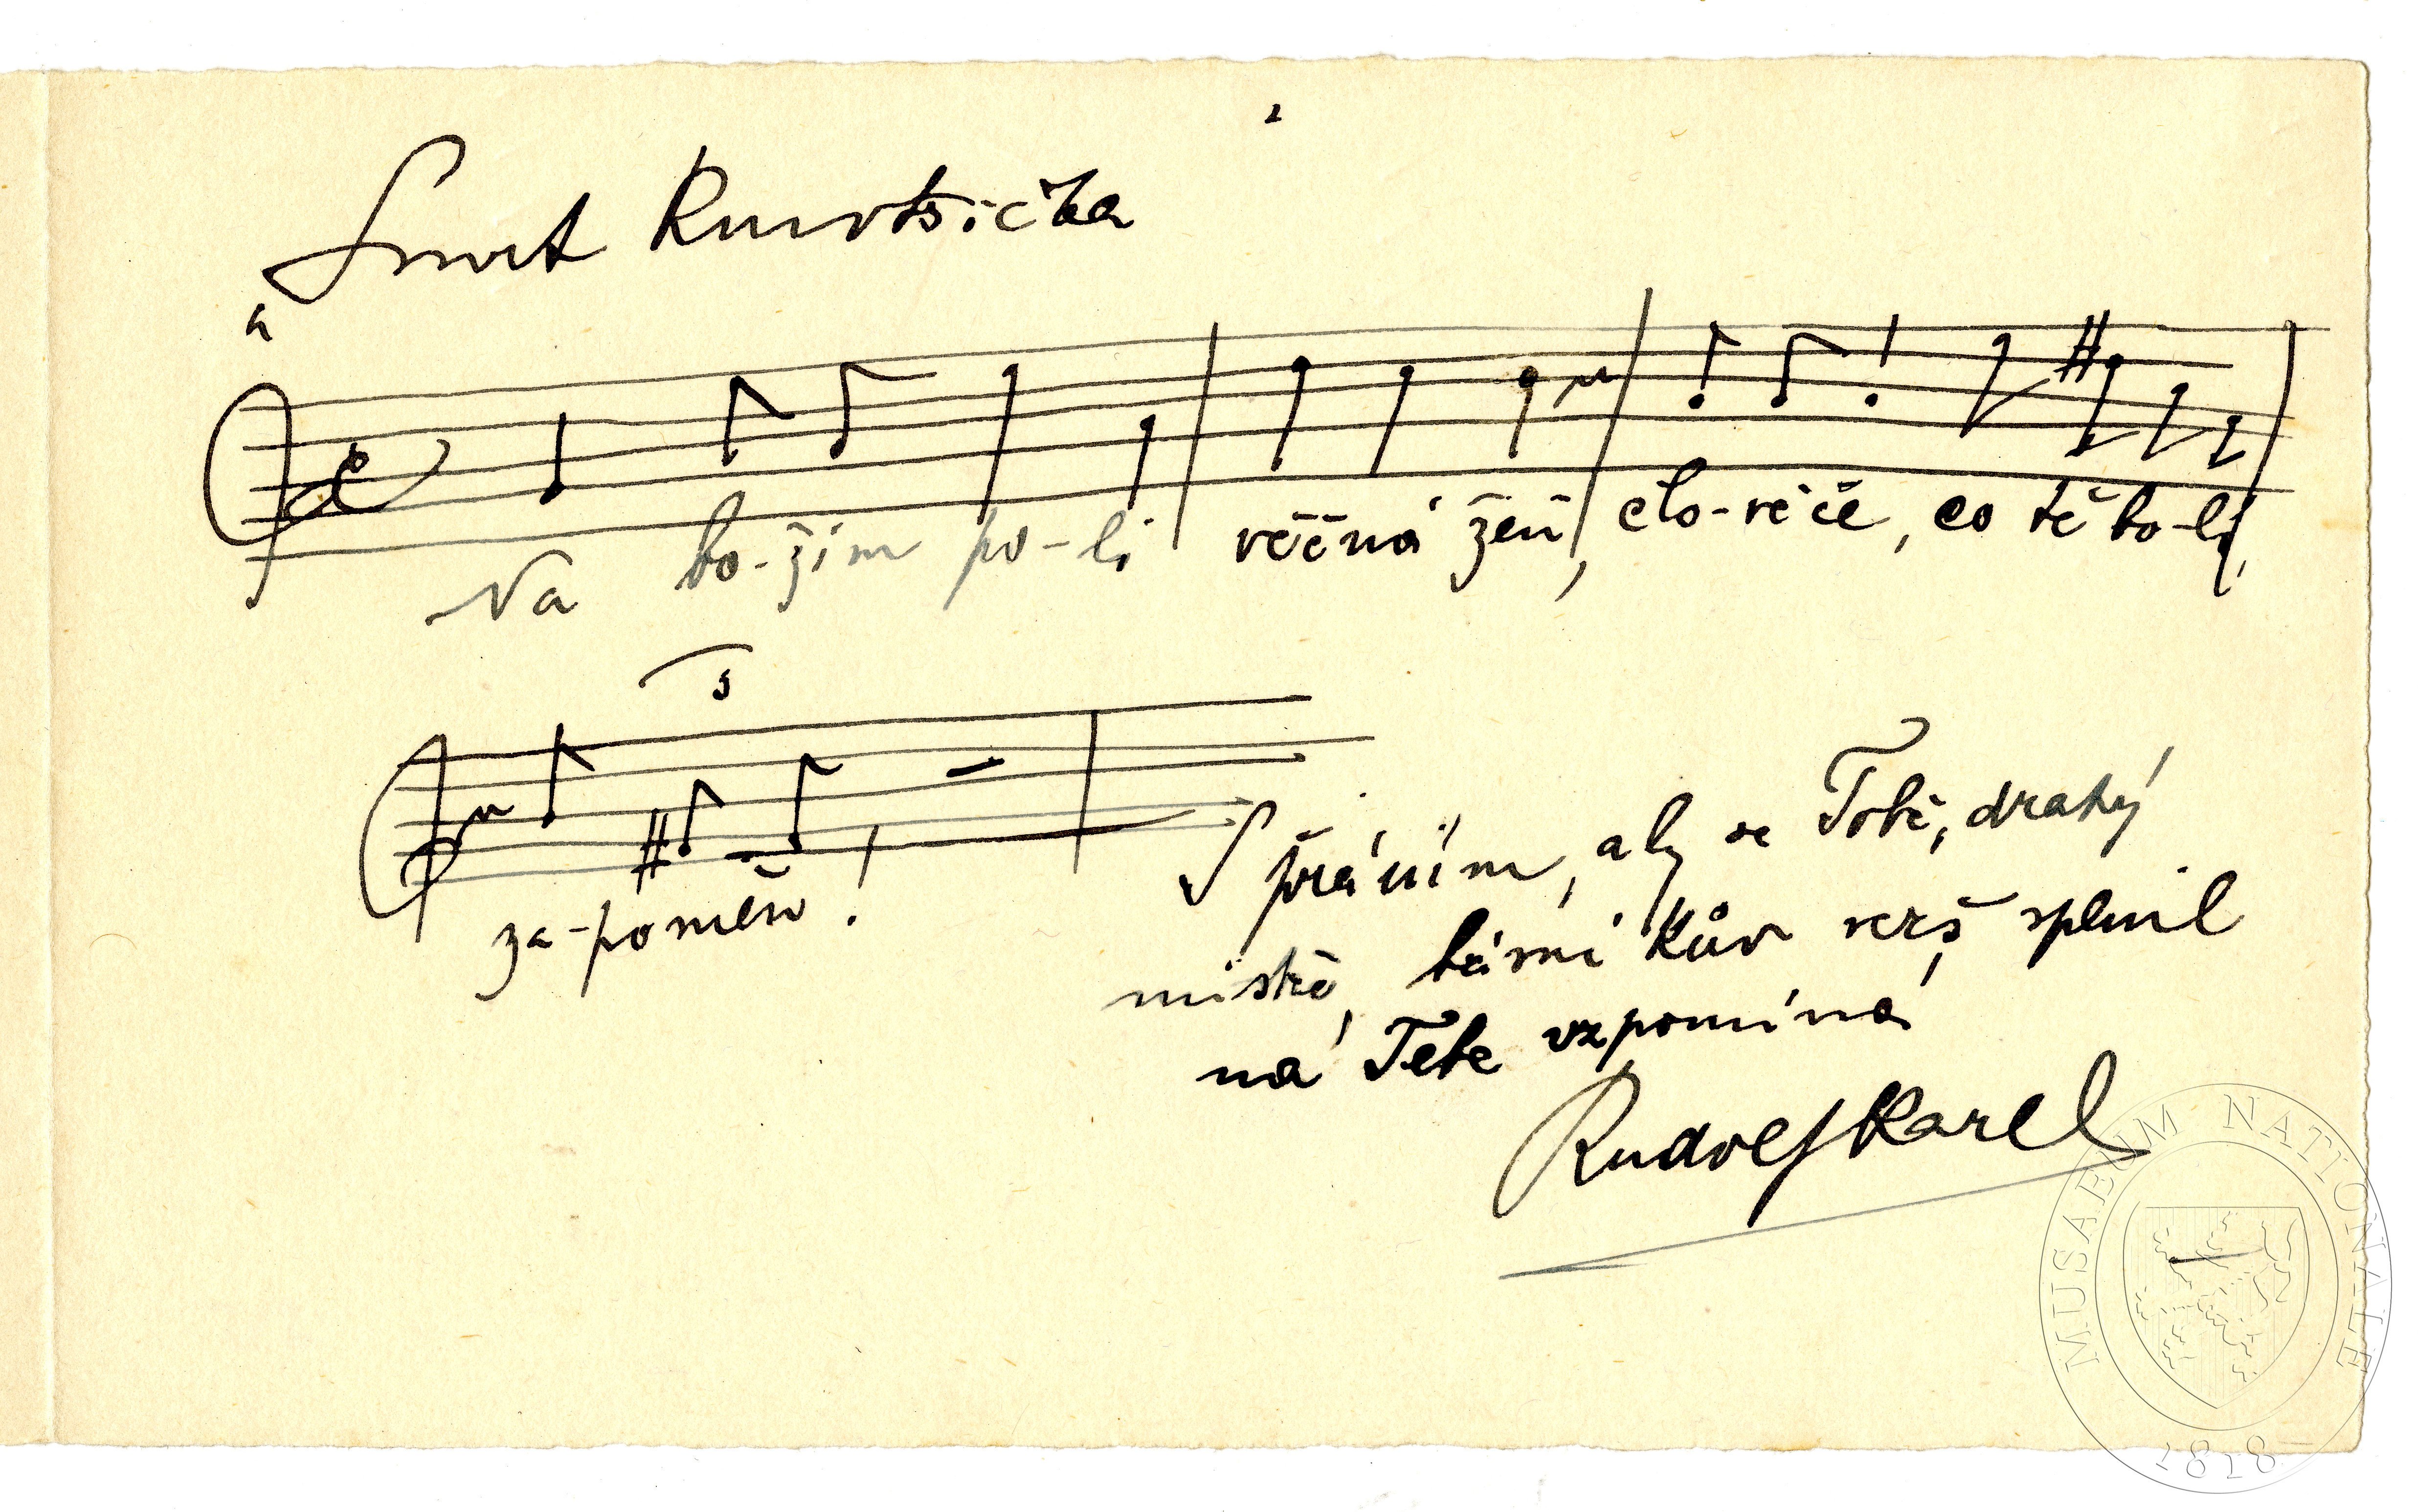 Smrt Kmotřička
Na bo-žím po-li věčná žeň, člo-věče, co tě bo-lí,
3
za-pomeň!
S přáním, aby se Tobě, drahý
mistře, básníkův verš splnil
na Tebe vzpomíná
Rudolf Karel
MUSAEUM NATIONALE
1818